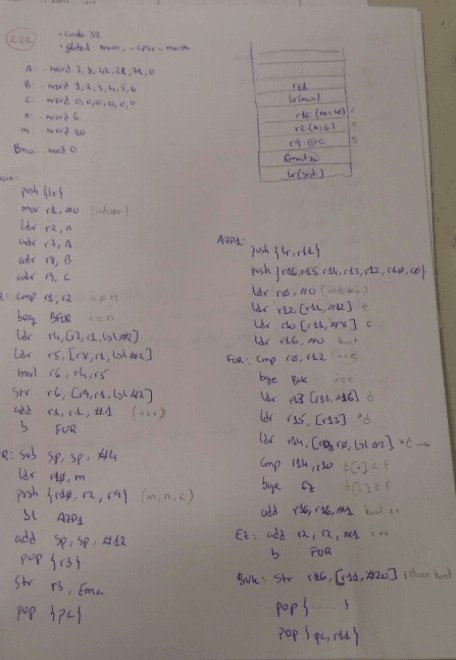 222
.code 32
.global main, __cpsr_mask
A: .word
B: .word 1,2,3,4,5,6
C: .word 0,0,0,0,0,0
n: .word 6
m: .word 10
Emai: .word 0
push {lr}
mov r1, #0 (indizea)
ldr r2, n
adr r7, A
adr r8, B
adr r9, C
cmp r1, r2 i = n
beq BFOR i = n
ldr r4, [r7, r1, lsl #2]
ldr r5, [r8, r1, lsl #2]
mul r6, r4, r5
str r6, [r9, r1, lsl #2]
add r1, r1, #1 (i++)
b FOR
R: sub sp, sp, #4
ldr r10, m
push {r10, r2, r9} (m, n, c)
bl AZP1
add sp, sp, #12
pop {r3}
str r3, Ema
pop {pc}
r11
lr(main)
r10 (m=10)
r2 (n=6)
r9 @C
Emaitza
lr(sist.)
AZP1:
push {lr, r11}
push {r16, r15, r14, r13, r12, r10, r0}
ldr r0, #0 (indizea)
ldr r12 [r11, #12] e
ldr r10 [r11, #8] f
ldr r16, #0 kont
FOR: cmp r0, r12
bge BUK
ldr r13 [r11, #16] d
ldr r15, [r13] *d
ldr r14, [r13, r0, lsl #2] *d
cmp r14, r10 d[i] < f
bge Ez d[i] ≥ f
add r16, r16, #1 kont ++
Ez: add r2, r2, #1 i++
b FOR
BUK: str r16, [r11, #20] return kont
pop {.....}
pop {pc, r11}